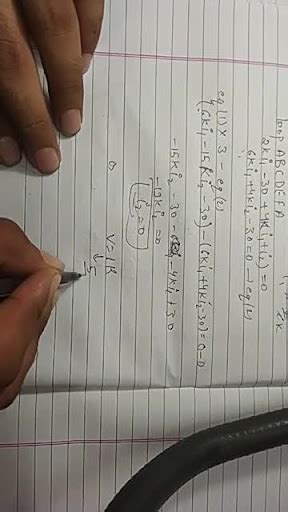 loop ABCDEFA
2ki₁ - 30 + 4k(i₁ + i₂) = 0
6ki₁ + 4ki₂ - 30 = 0 — eq(2)
eq(1) × 3 - eq(2)
(6ki₁ - 15ki₂ - 30) - (6ki₁ + 4ki₂ - 30) = 0 - 0
-15ki₂ - 30 - 4ki₂ + 30
-19ki₂ = 0
i₂ = 0
V = IR